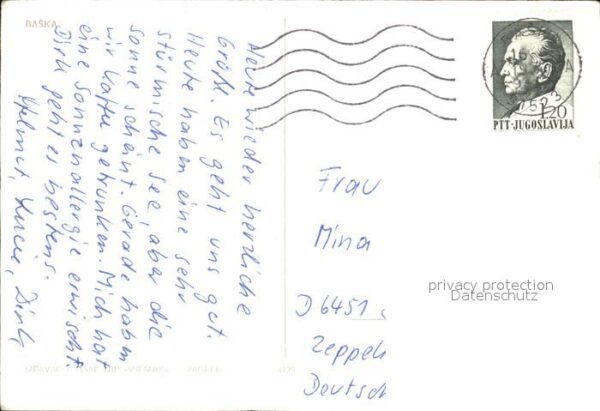 BAŠKA
Heute wieder herrliche
Grüße. Es geht uns gut.
Heute haben eine sehr
stürmische See, aber die
Sonne scheint. Gerade haben
wir Kaffee getrunken. Mich hat
eine Sonnenallergie erwischt
Dirk geht es bestens.
Helmut, Lucia, Dirk
1.20
PTT-JUGOSLAVIJA
Frau
Mina
D 6451
Zeppeli
Deutsch
privacy protection
Datenschutz